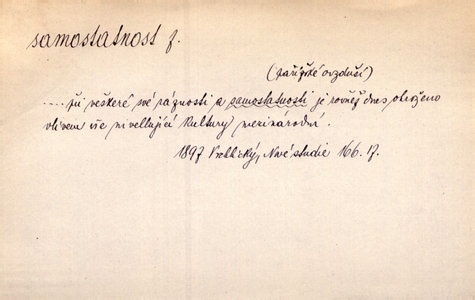 samostatnost f.
(pařížské ovzduší)
.... při veškeré své ráznosti a samostatnosti je rovněž dnes otráveno
vlivem vše nivellující kultury mezinárodní.
1897 Vrchlický, Nové studie 166. 17.